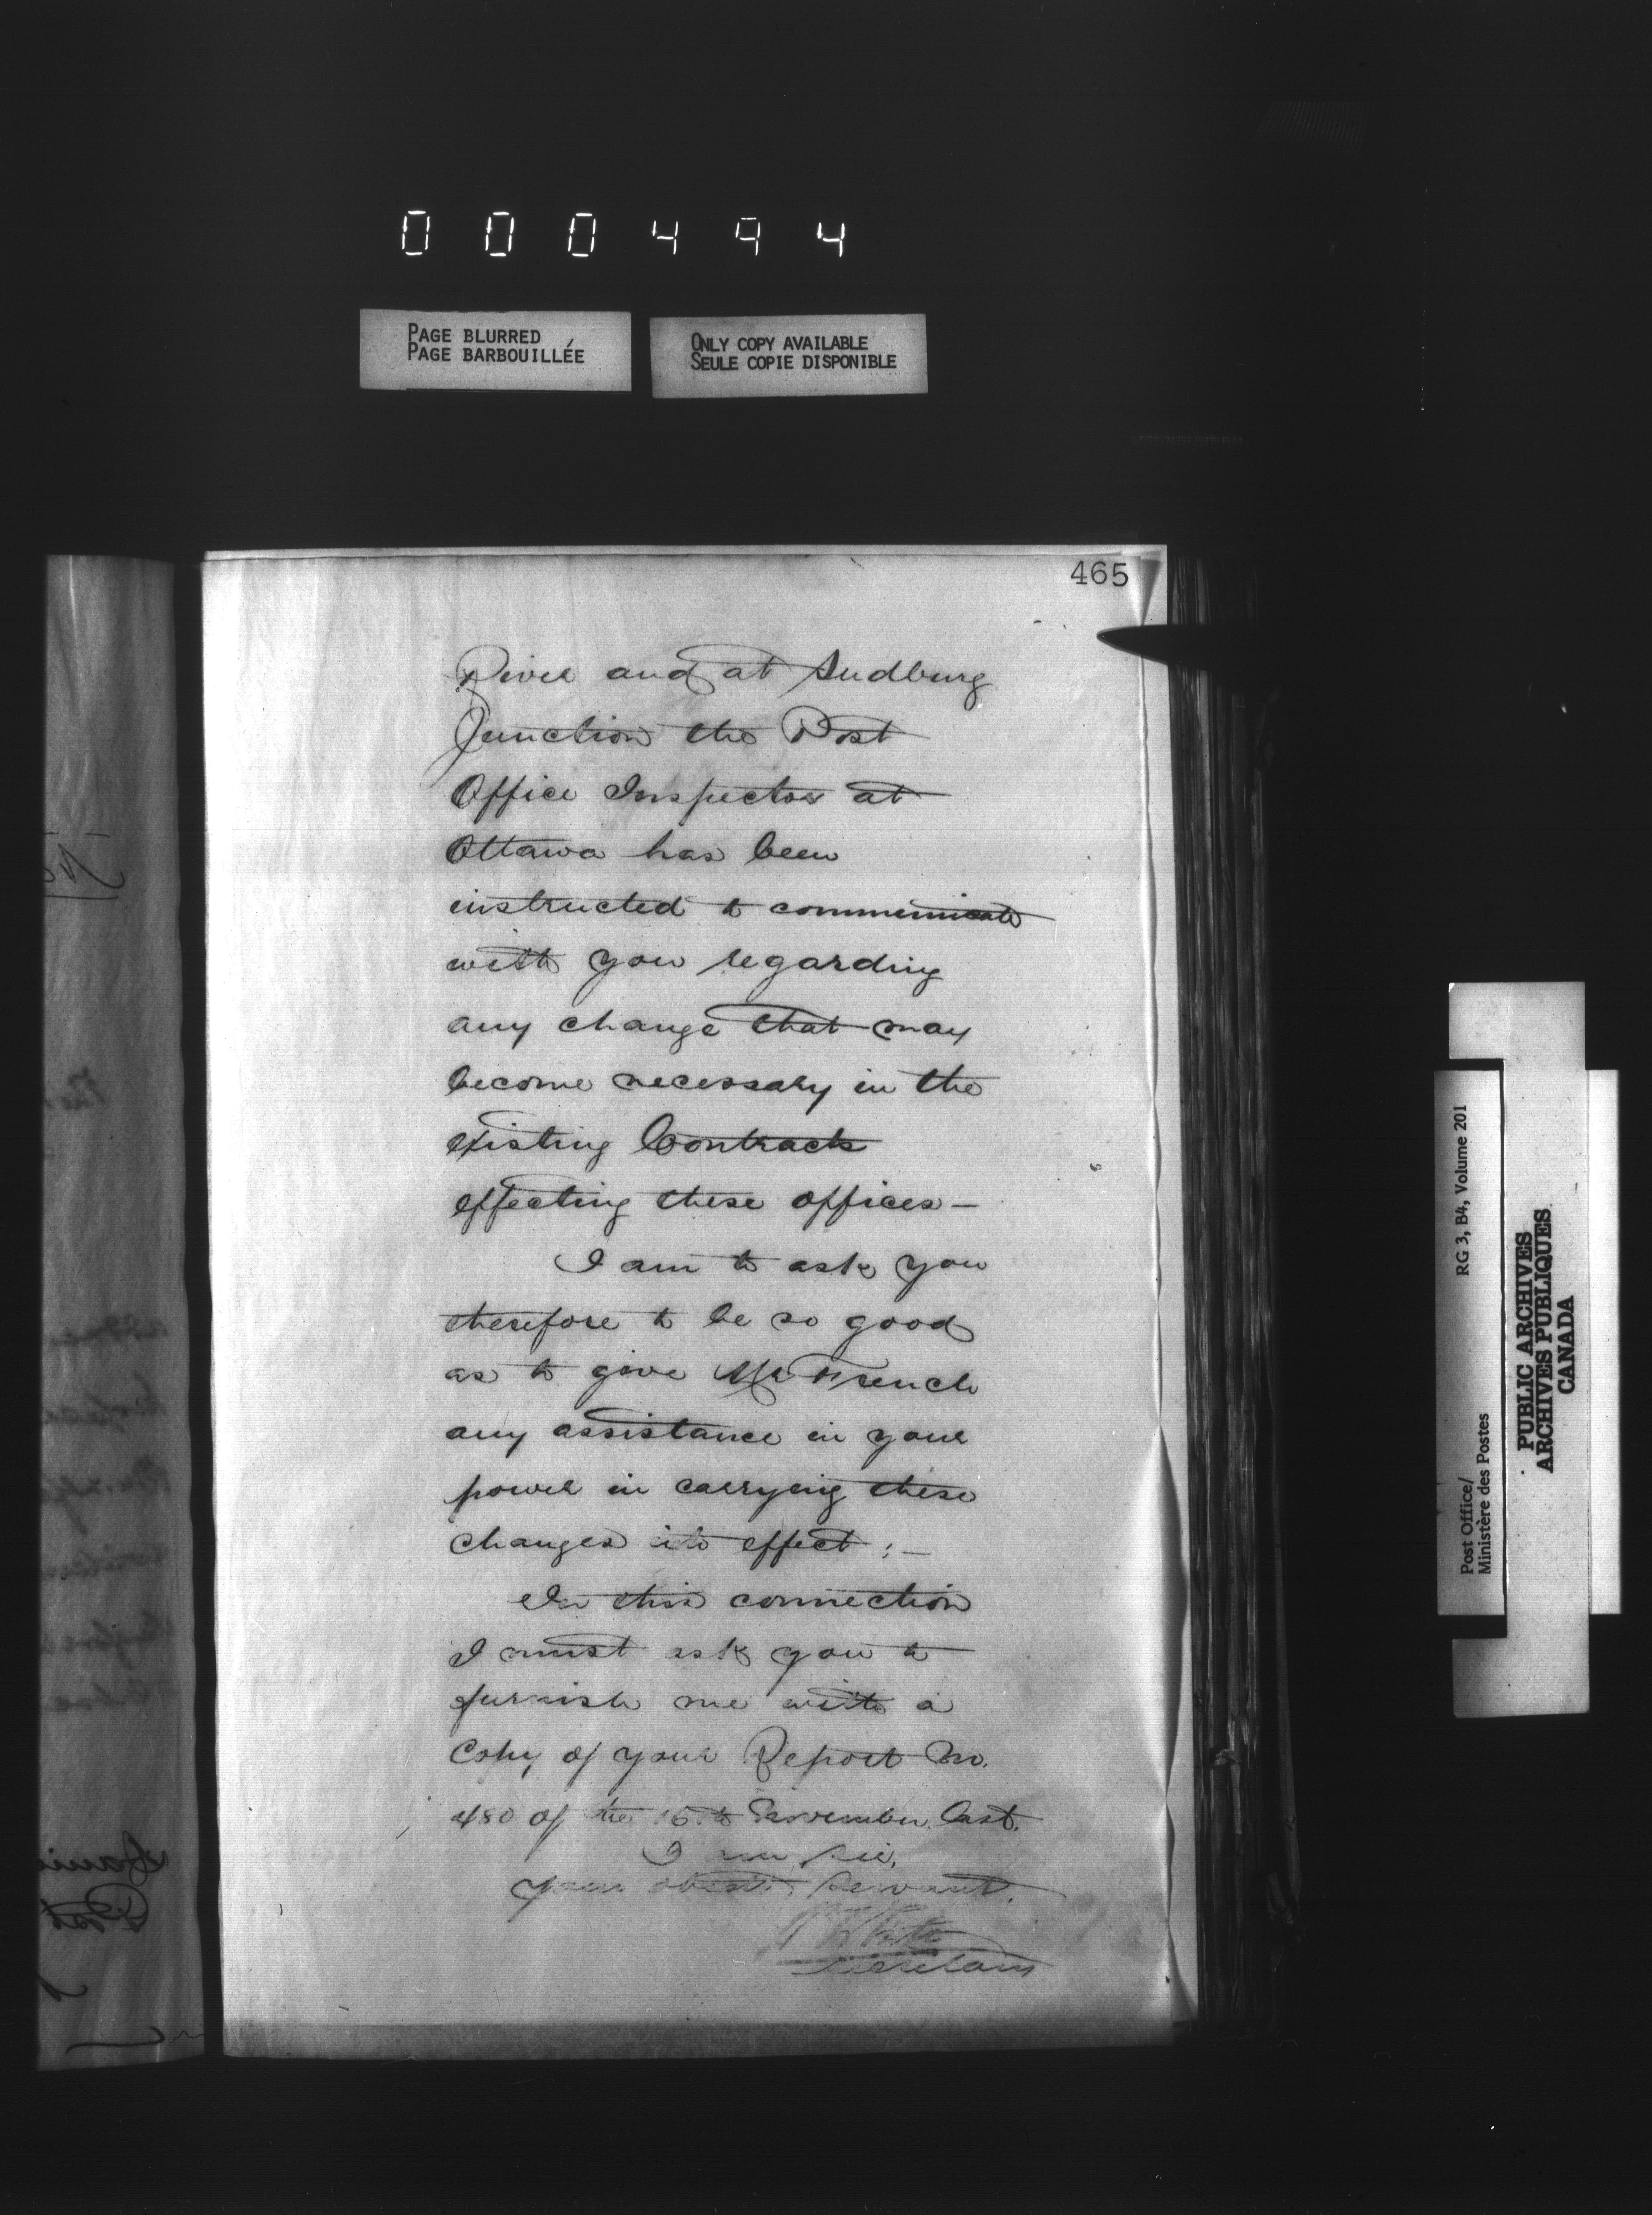 000494
PAGE BLURRED
PAGE BARBOUILLÉE
ONLY COPY AVAILABLE
SEULE COPIE DISPONIBLE
465
River and at Sudbury
Junction the Post
Office Inspector at
Ottawa has been
instructed to communicate
with you regarding
any change that may
become necessary in the
existing Contracts
effecting these offices —
I am to ask you
therefore to be so good
as to give Mr French
any assistance in your
power in carrying these
changes into effect : —
In this connection
I must ask you to
furnish me with a
Copy of your Report No.
480 of the 15th last.
I am, Sir,
Your obedt. Servant.
White
Secretary
RG 3, B4, Volume 201
Post Office/
Ministère des Postes
PUBLIC ARCHIVES
ARCHIVES PUBLIQUES
CANADA